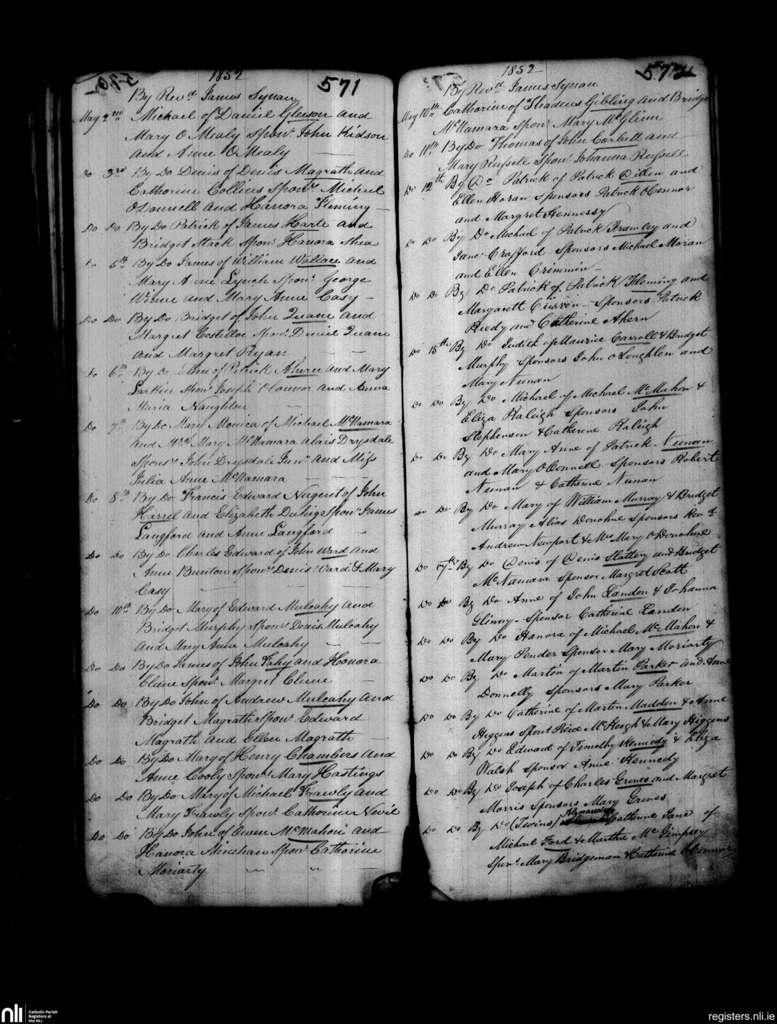 1852
571
By Revd James Synan
May 2nd Michael of Daniel Gleeson and
Mary O Mealy Sponr John Hidson
and Anne O Mealy
Do 3rd By Do Denis of Denis Magrath and
Catherine Collins Sponr Michael
O Donnell and Hanora Fleming
Do Do By Do Patrick of James Harte and
Bridget Stack Sponr Hanora Shea
6th By Do James of William Wallace and
Mary Anne Lynch Sponr George
and Mary Anne Casy
Do Do By Do Bridget of John Quane and
Margret Costelloe Sponr Daniel Quane
and Margret Ryan
6th By Do Ellen of Patrick Ahern and Mary
Larkin Sponr Joseph O Connor and Anna
Maria Naughton
Do 7th By Do Mary Monica of Michael McNamara
and Mrs Mary McNamara alais Drysdale
Sponsr John Drysdale Junr and Miss
Julia Anne McNamara
Do 8th By Do Francis Edward Nugent of John
Harrel and Elizabeth Sponr James
Langford and Anne Langford
Do Do By Do Charles Edward of John Ward and
Anne Bunton Sponr Denis Ward & Mary
Casy
Do 10th By Do Mary of Edward Mulcahy and
Bridget Murphy Sponr Denis Mulcahy
and Mary Anne Mulcahy
Do Do By Do James of John Fahy and Honora
Clune Sponr Margret Clune
Do Do By Do John of Andrew Mulcahy and
Bridget Magrath Sponr Edward
Magrath and Ellen Magrath
Do Do By Do Mary of Henry Chambers and
Anne Cooly Sponr Mary Hastings
Do Do By Do Mary of Michael Frawly and
Mary Frawly Sponr Catherine Nevil
Do Do By Do John of Owen McMahon and
Hanora Minehan Sponr Catherine
Moriarty
1852
572
By Revd James Synan
May 10th Catherine of Thadeus Gibling and Bridget
McNamara Sponr Mary McGlinn
Do 11th By Do Thomas of John Corbett and
Mary Russell Sponr Johanna Russell
Do 12th By Do Patrick of Patrick Aitken and
Ellen Horan Sponsors Patrick O Connor
and Margret Hennessy
Do Do By Do Michael of Patrick Bromley and
Jane Crafford Sponsors Michael Moran
and Ellen Crimmin
Do Do By Do Patrick of Patrick Fleming and
Margarett Sponsors Patrick
and Catherine Ahern
Do 15th By Do Judith of Maurice Carroll & Bridget
Murphy Sponsors John O Loughlen and
Mary Neenan
Do Do By Do Michael of Michael McMahon &
Eliza Raleigh Sponsors John
Stephenson & Catherine Raleigh
Do Do By Do Mary Anne of Patrick Neenan
and Mary O Connell Sponsors Robert
Neenan & Catherine Neenan
Do By Do Mary of William Murray & Bridget
Murray Alias Donohue Sponsors Revd
Andrew Newport & Mrs Mary O Donohue
Do 17th By Do Denis of Denis Slattery and Bridget
McNamara Sponsor Margret Scott
Do Do By Do Anne of John Landon & Johanna
Glenny Sponsor Catherine Landon
Do Do By Do Honora of Michael McMahon &
Mary Pender Sponsor Mary Moriarty
Do Do By Do Martin of Martin Parker and Anne
Donnelly Sponsors Mary Parker
Do Do By Do Catherine of Martin Madden & Anne
Higgens Sponr McHugh & Mary Higgens
Do Do By Do Edward of Timothy Kennedy & Eliza
Walsh Sponsor Anne Kennedy
Do Do By Do Joseph of Charles Greves and Margret
Morris Sponsors Mary Greves
Do Do By Do (Twins) Catherine Jane of
Michael Ford & Martha McGimpsy
Sponr Mary Bridgeman & Catherine O Connor
nli
Catholic Parish
Registers at
the NLI
registers.nli.ie